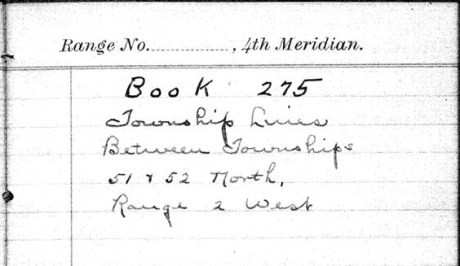 Range No. ................, 4th Meridian.
Book 275
Township Lines
Between Townships
51 & 52 North,
Range 2 West